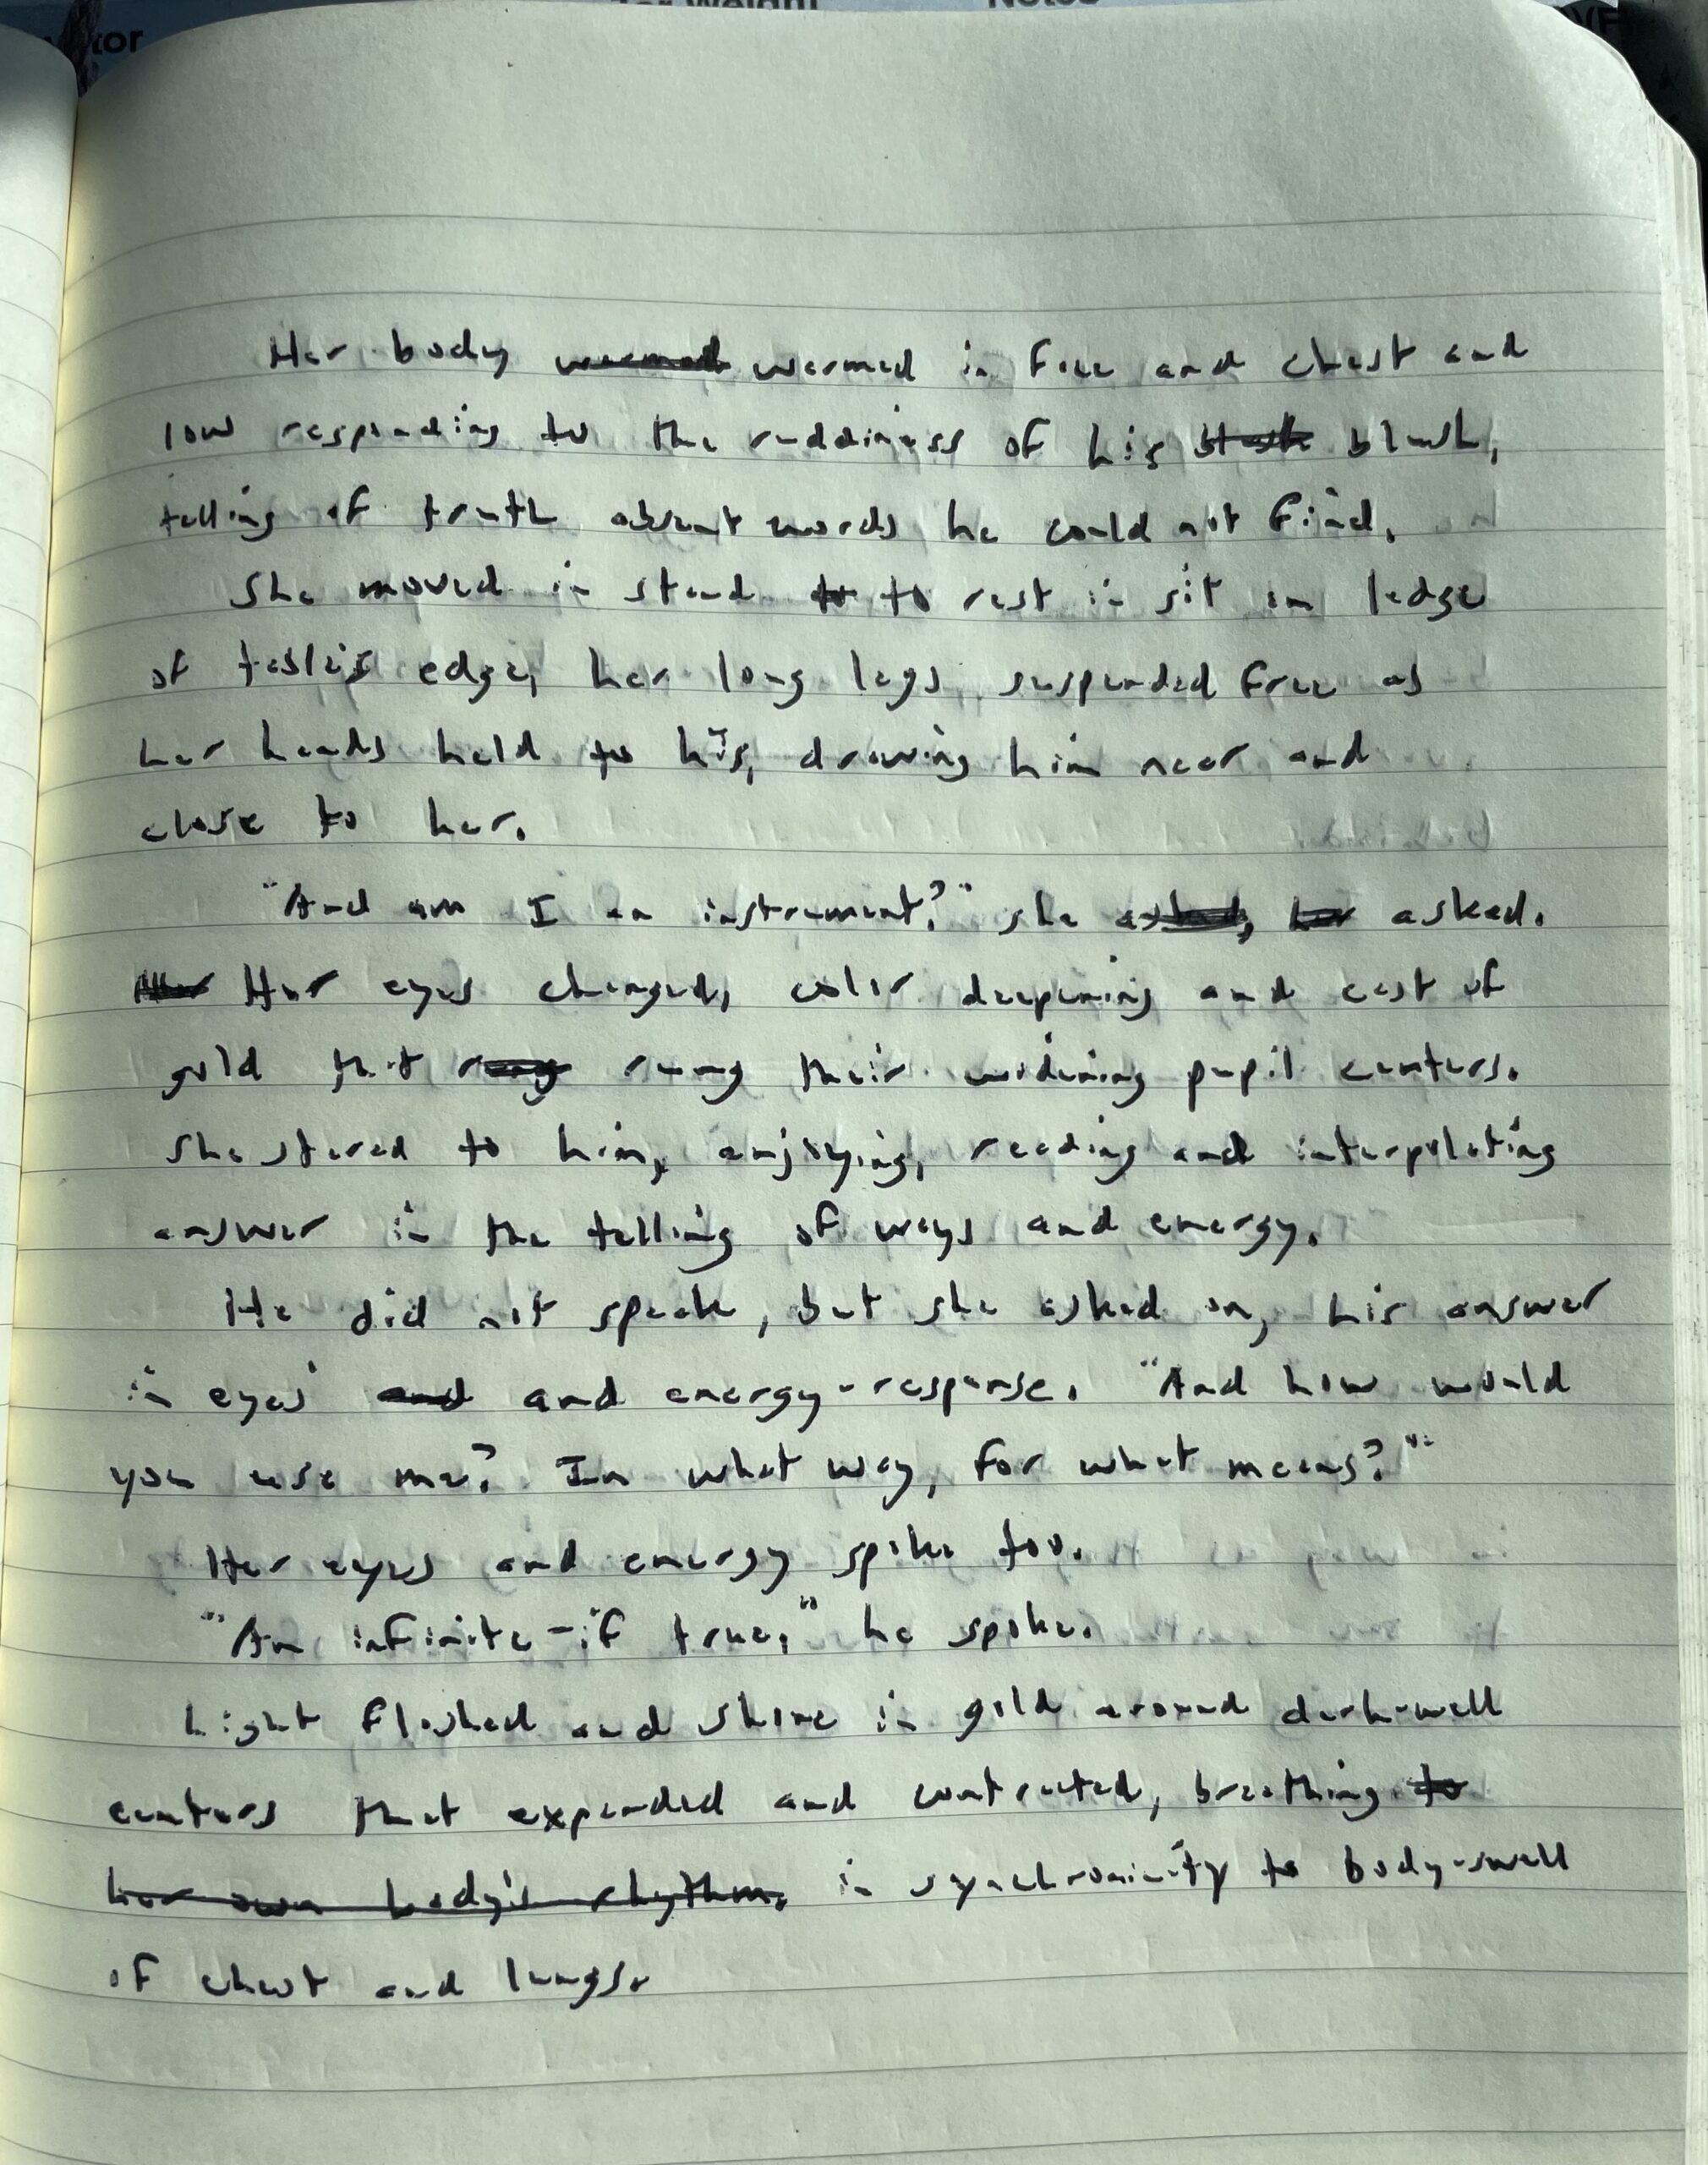 tor
Notes
Her body warmed warmed in face and chest and
low responding to the ruddiness of his blush blush,
telling of truth absent words he could not find.
She moved in stand to to rest in sit on ledge
of table's edge, her long legs suspended free as
her hands held to his, drawing him near and
close to her.
"And am I an instrument?" she asked, her asked.
Her eyes changed, color deepening and cast of
gold that rung rung their widening pupil centers.
She stared to him, enjoying, reading and interpolating
answer in the telling of ways and energy.
He did not speak, but she asked on, his answer
in eyes and and energy-response. "And how would
you use me? In what way, for what means?"
Her eyes and energy spike too.
"An infinite-if true," he spoke.
Light flashed and shone in gold around dark-well
centers that expanded and contracted, breathing to
her own body's rhythm. in synchronicity to body-swell
of chest and lungs.